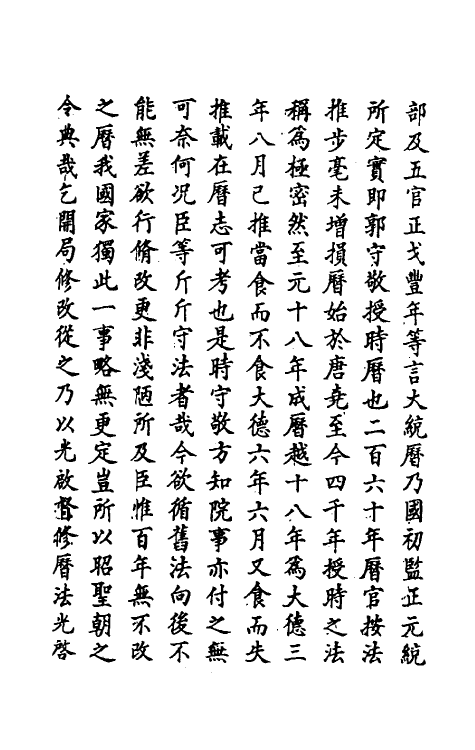 部及五官正戈豐年等言大統曆乃國初監正元統
所定實即郭守敬授時曆也二百六十年曆官按法
推步毫未增損曆始於唐堯至今四千年授時之法
稱為極密然至元十八年成曆越十八年為大德三
年八月已推當食而不食大德六年六月又食而失
推載在曆志可考也是時守敬方知院事亦付之無
可奈何况臣等斤斤守法者哉今欲循舊法向後不
能無差欲行脩改更非淺陋所及臣惟百年無不改
之曆我國家獨此一事略無更定豈所以昭聖朝之
令典哉乞開局修改從之乃以光啟督修曆法光啓